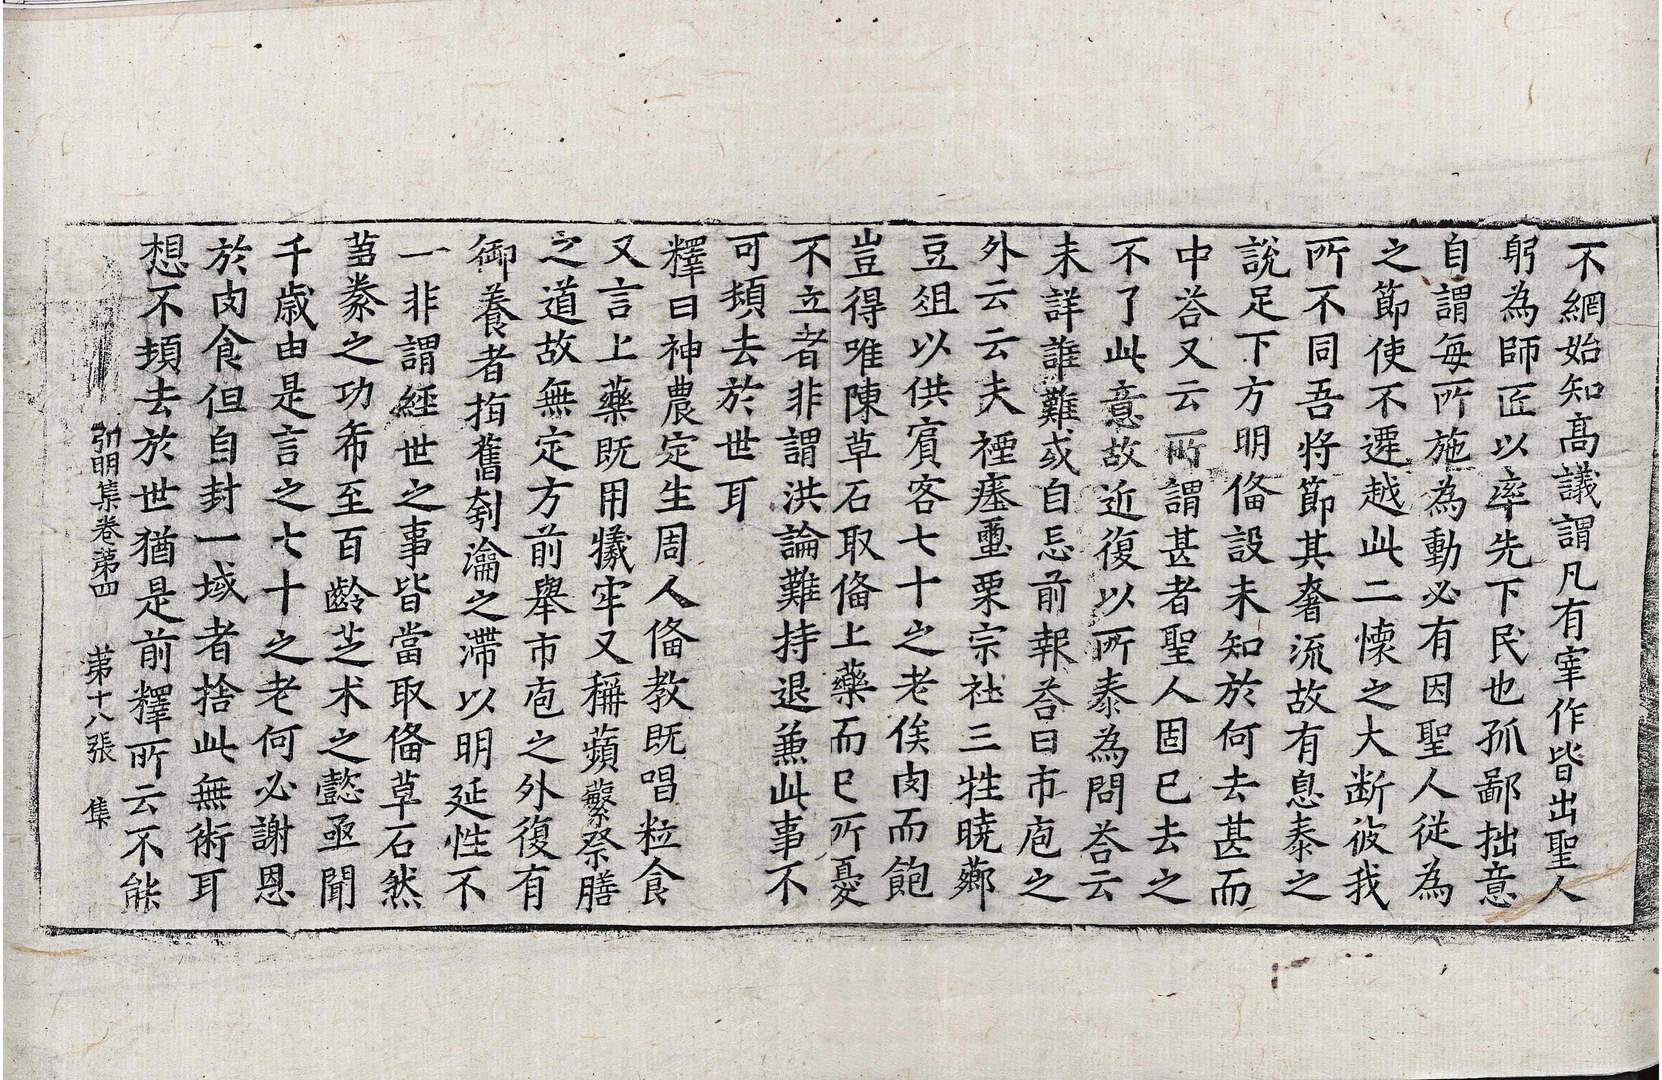 不網始知高議謂凡有宰作皆出聖人
躬為師匠以率先下民也孤鄙拙意
自謂每所施為動必有因聖人從為
之節使不遷越此二懷之大断彼我
所不同吾将節其奢流故有息泰之
說足下方明俻設未知於何去甚而
中荅又云所謂甚者聖人固已去之
不了此意故近復以所泰為問荅云
未詳誰難或自忘前報荅曰市庖之
外云云夫禋瘞璽栗宗社三牲曉薌
豆俎以供賓客七十之老俟肉而飽
豈得唯陳草石取俻上藥而已所憂
不立者非謂洪論難持退兼此事不
可頓去於世耳
釋曰神農定生周人俻教既唱粒食
又言上藥既用犧牢又稱蘋蘩祭膳
之道故無定方前舉市庖之外復有
御養者指舊刳瀹之滯以明延性不
一非謂經世之事皆當取俻草石然
芻豢之功希至百齡芝术之懿亟聞
千歲由是言之七十之老何必謝恩
於肉食但自封一域者捨此無術耳
想不頓去於世猶是前釋所云不能
弘明集卷第四 第十八張 集